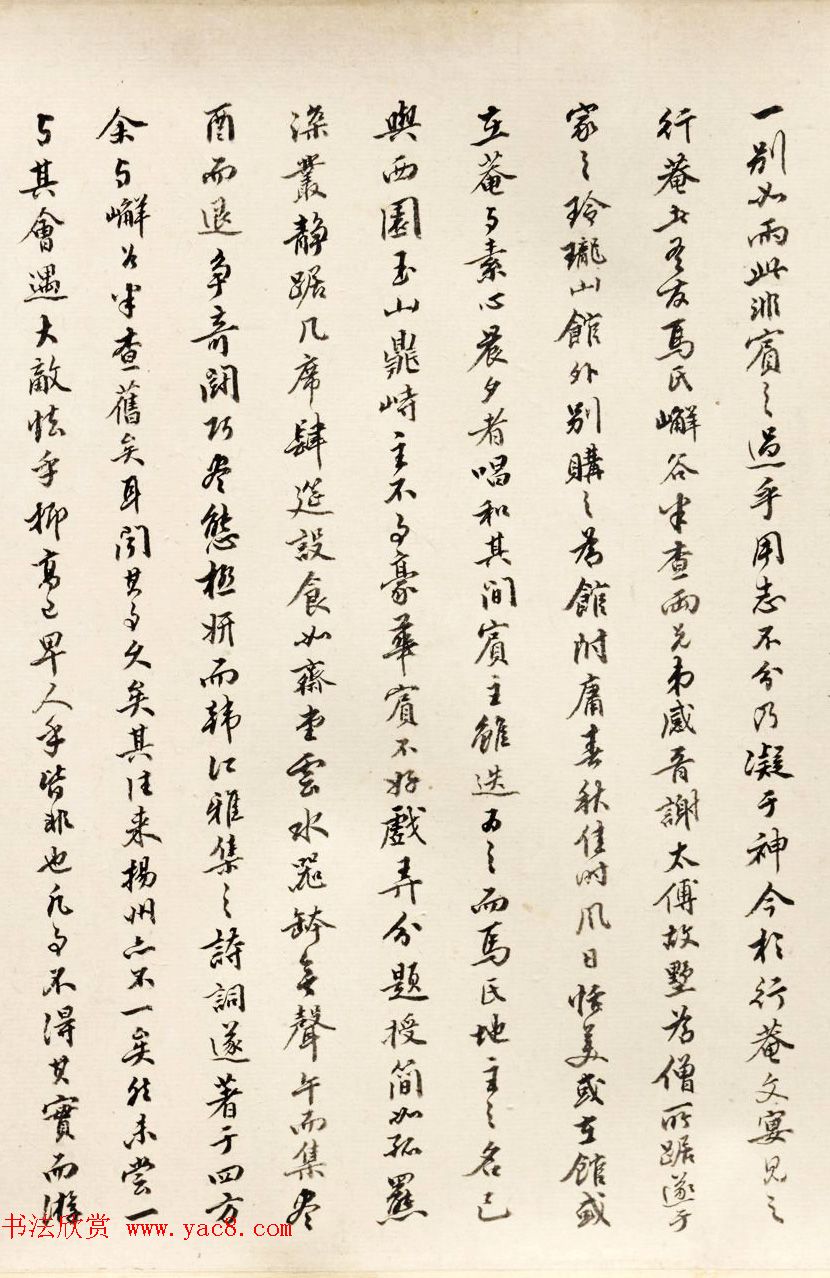 一别如雨此非賓之過乎用志不分乃凝于神今於行菴文宴見之
行菴者吾友馬氏嶰谷半查兩兄弟感晋謝太傅故墅为僧所踞遂于
家之玲瓏山館外别購之为館附庸春秋佳时風日恬美或在館或
在菴与素心晨夕者唱和其间賓主雖迭为之而馬氏地主之名已
與西園玉山鼎峙主不事豪華賓不好戲弄分題授简如孤羆
深叢静踞几席肆筵設食如齋堂雲水器鉢無聲午而集尽
酉而退争奇鬭巧尽態極妍而韩江雅集之詩詞遂著于四方
余与嶰谷半查舊矣耳闻其事久矣其往来揚州亦不一矣然未嘗一
与其會遇大敵怯乎抑高己卑人乎皆非也凡事不得其實而游
书法欣赏 www.yac8.com